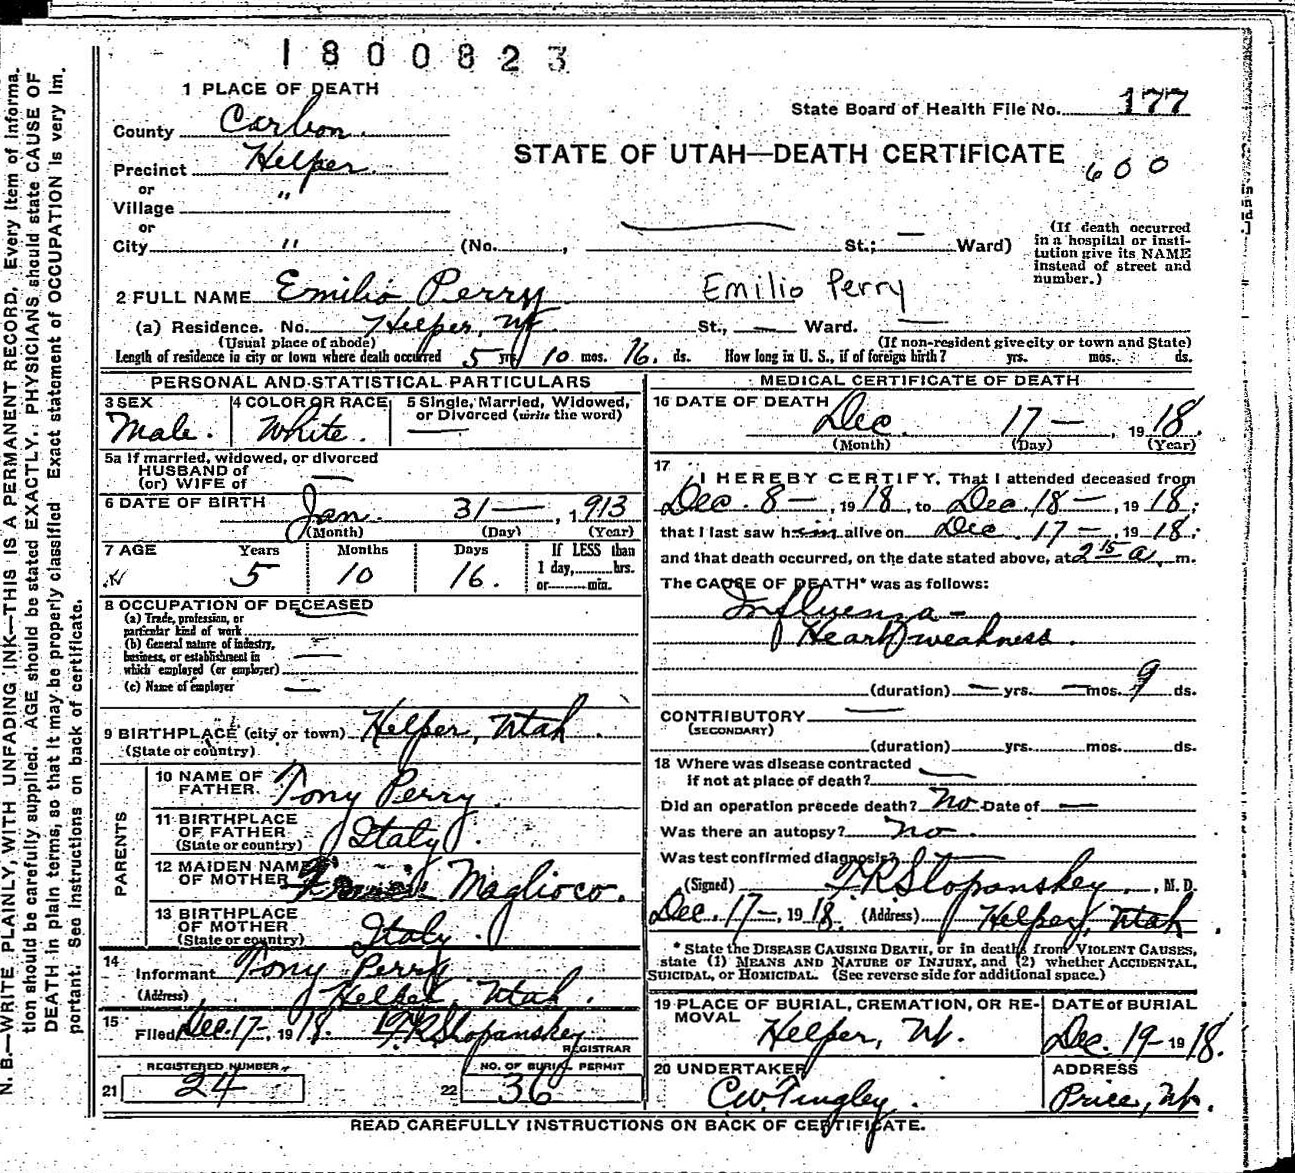 1800823
1 PLACE OF DEATH
State Board of Health File No. 177
County Carbon
STATE OF UTAH—DEATH CERTIFICATE
600
Precinct Helper
or
Village "
or
City " (No. , St.; — Ward)
(If death occurred
in a hospital or insti-
tution give its NAME
instead of street and
number.)
2 FULL NAME Emilio Perry Emilio Perry
(a) Residence. No. Helper, Ut St., — Ward. —
(Usual place of abode) (If non-resident give city or town and State)
Length of residence in city or town where death occurred 5 yrs. 10 mos. 16. ds. How long in U. S., if of foreign birth? yrs. mos. ds.
PERSONAL AND STATISTICAL PARTICULARS
3 SEX
Male.
4 COLOR OR RACE
White.
5 Single, Married, Widowed,
or Divorced (write the word)
—
5a If married, widowed, or divorced
HUSBAND of
(or) WIFE of —
6 DATE OF BIRTH
Jan. 31 — , 1913
(Month) (Day) (Year)
7 AGE Years Months Days If LESS than
1 day, hrs.
or min.
5 10 16.
8 OCCUPATION OF DECEASED
(a) Trade, profession, or
particular kind of work —
(b) General nature of industry,
business, or establishment in
which employed (or employer) —
(c) Name of employer —
9 BIRTHPLACE (city or town) Helper, Utah.
(State or country)
PARENTS
10 NAME OF
FATHER. Tony Perry.
11 BIRTHPLACE
OF FATHER
(State or country) Italy.
12 MAIDEN NAME
OF MOTHER Maglioco.
13 BIRTHPLACE
OF MOTHER
(State or country) Italy.
14
Informant Tony Perry
(Address) Helper, Utah.
15
Filed Dec. 17-, 1918. F.R. Slopanskey
REGISTRAR
REGISTERED NUMBER
21 24
NO. OF BURIAL PERMIT
22 36
MEDICAL CERTIFICATE OF DEATH
16 DATE OF DEATH
Dec. 17 — , 1918.
(Month) (Day) (Year)
17
I HEREBY CERTIFY, That I attended deceased from
Dec. 8 — , 1918, to Dec. 18 — , 1918;
that I last saw him alive on Dec. 17 — , 1918;
and that death occurred, on the date stated above, at 2 15 a. m.
The CAUSE OF DEATH* was as follows:
Influenza -
Heart weakness.
(duration) — yrs. — mos. 9 ds.
CONTRIBUTORY —
(SECONDARY)
(duration) yrs. mos. ds.
18 Where was disease contracted
if not at place of death? —
Did an operation precede death? No Date of —
Was there an autopsy? no.
Was test confirmed diagnosis? —
(Signed) F.R. Slopanskey, M. D.
Dec. 17 -, 1918. (Address) Helper, Utah.
* State the DISEASE CAUSING DEATH, or in deaths from VIOLENT CAUSES,
state (1) MEANS AND NATURE OF INJURY, and (2) whether ACCIDENTAL,
SUICIDAL, or HOMICIDAL. (See reverse side for additional space.)
19 PLACE OF BURIAL, CREMATION, OR RE-
MOVAL
Helper, Ut.
DATE of BURIAL
Dec. 19- 1918.
20 UNDERTAKER
C.W. Tingley.
ADDRESS
Price, Ut.
READ CAREFULLY INSTRUCTIONS ON BACK OF CERTIFICATE.
N. B.—WRITE PLAINLY, WITH UNFADING INK—THIS IS A PERMANENT RECORD. Every item of informa-
tion should be carefully supplied. AGE should be stated EXACTLY. PHYSICIANS should state CAUSE OF
DEATH in plain terms, so that it may be properly classified. Exact statement of OCCUPATION is very im-
portant. See instructions on back of certificate.